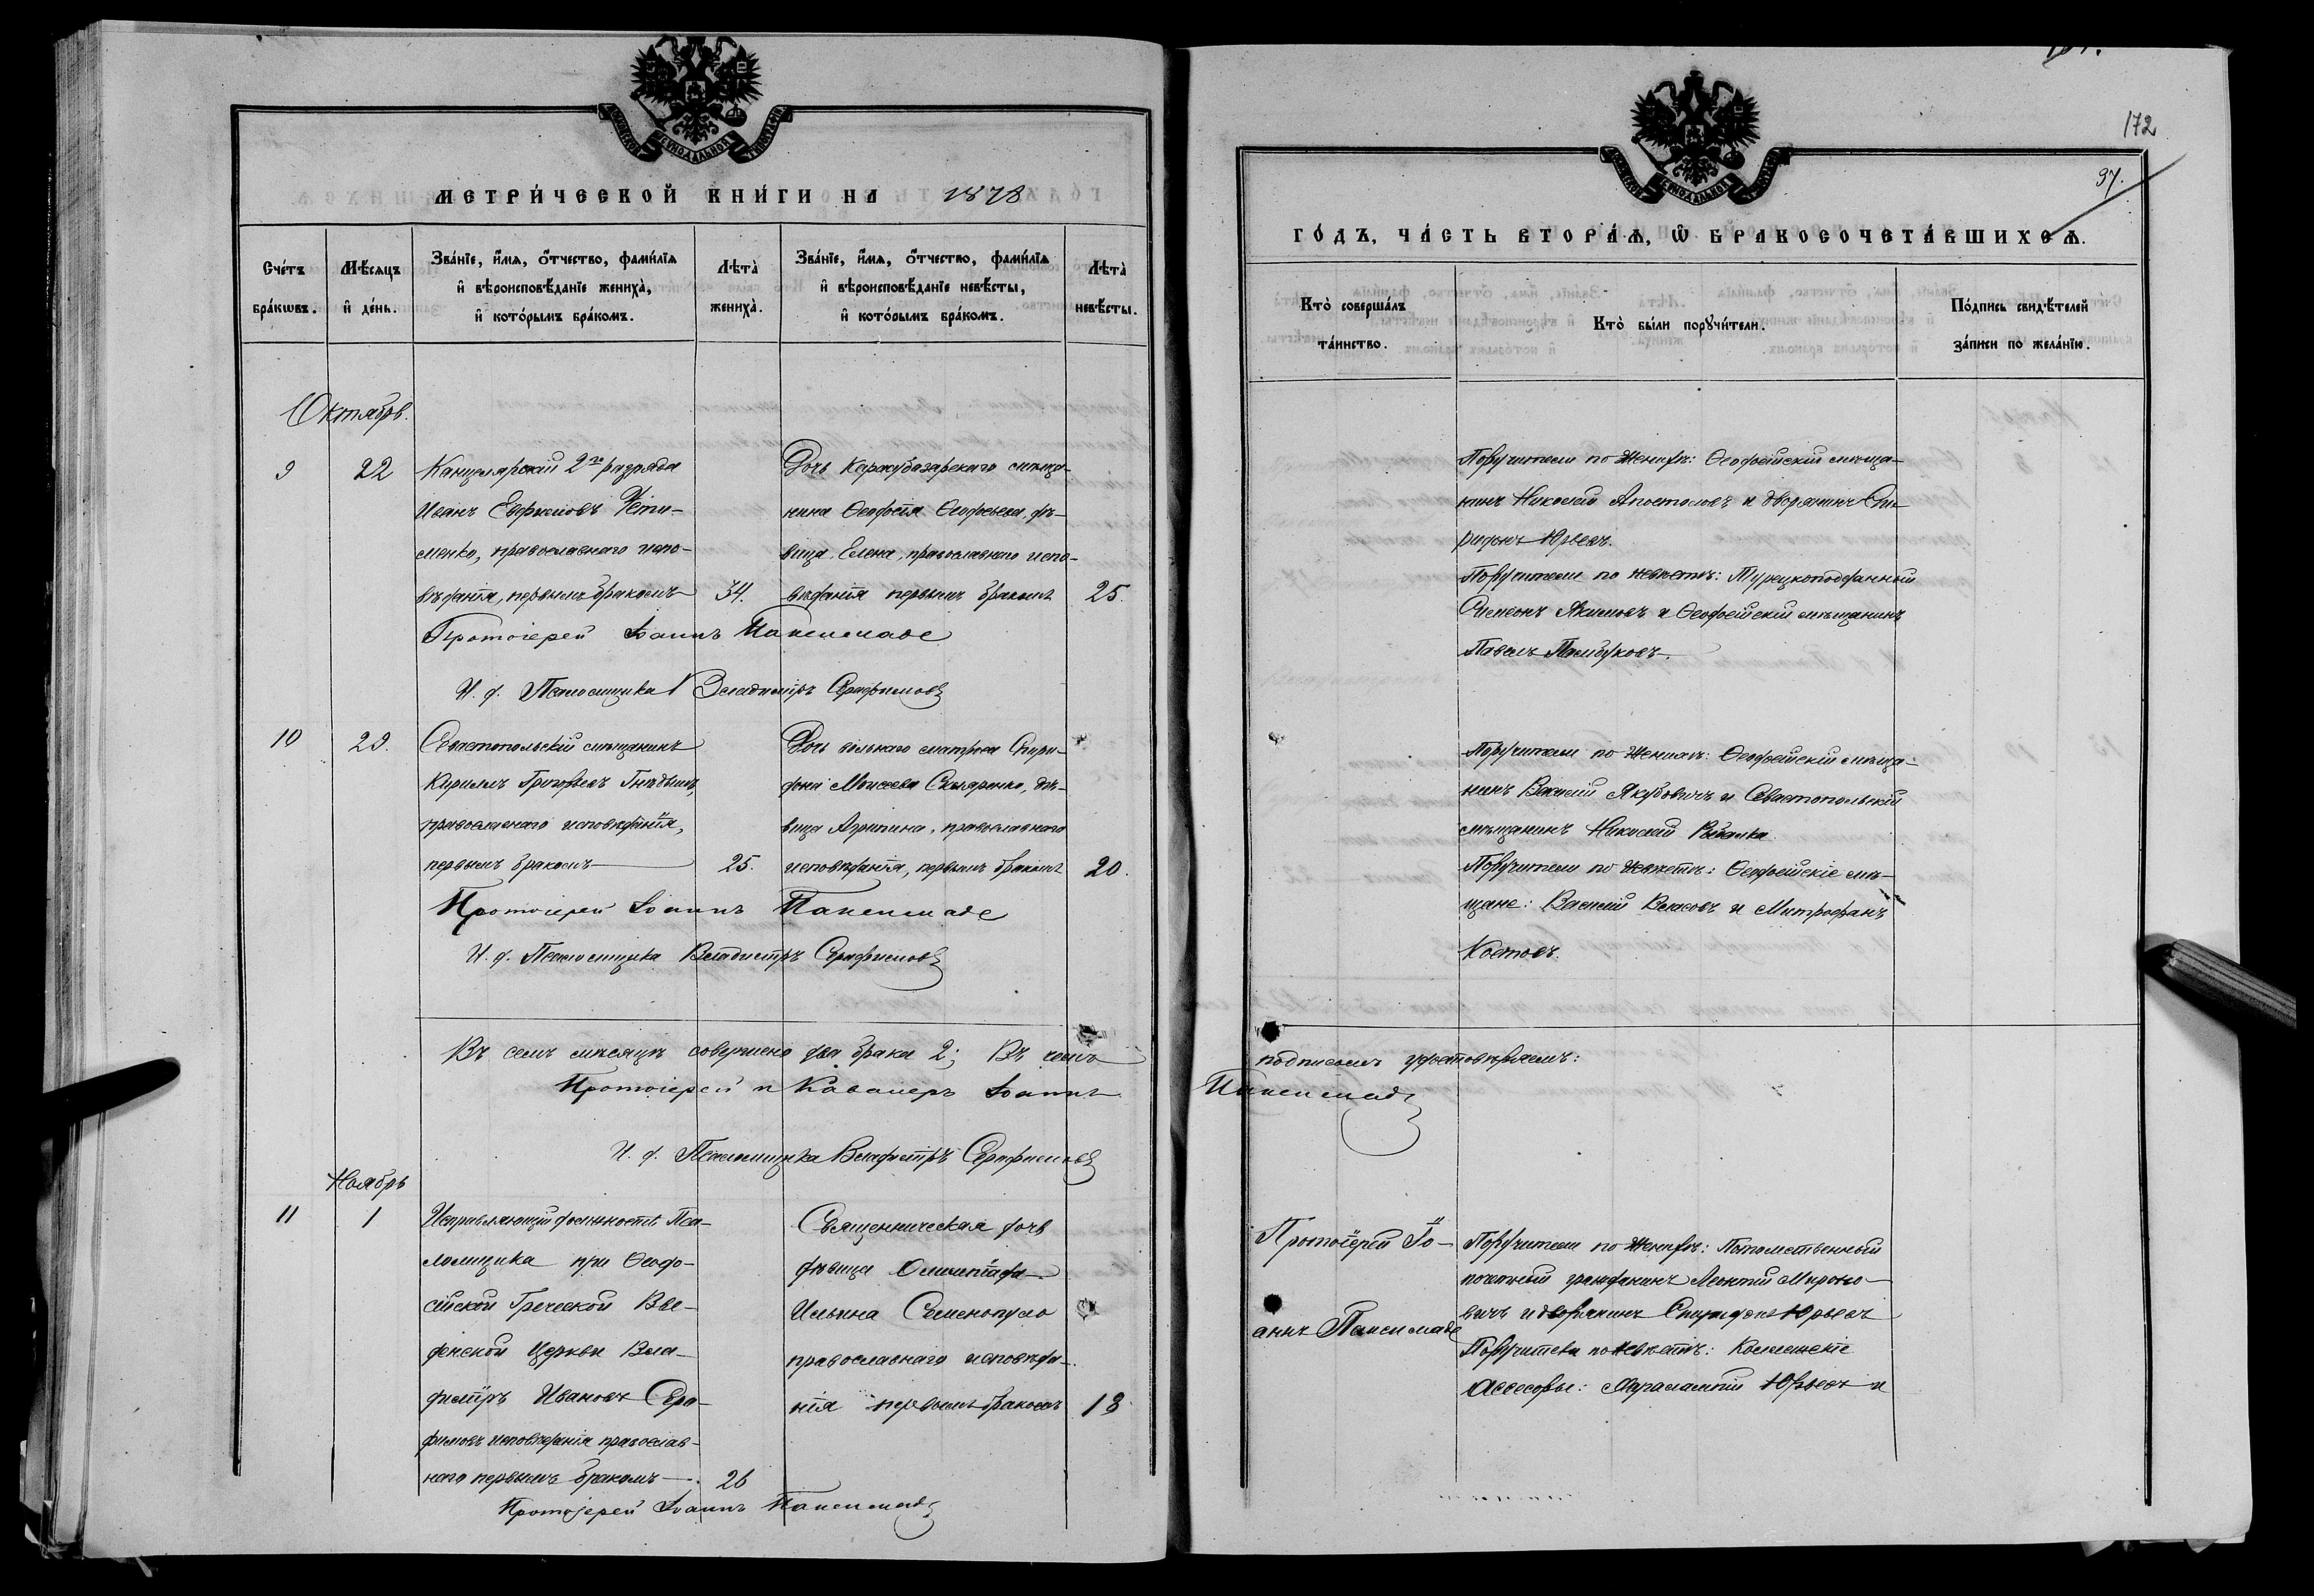 МЕТРИ́ЧЕСКОЙ КНИ́ГИ НА 1878
Сче́тъ бра́кωвъ.
Мѣ́сяцъ и҆ де́нь.
Зва́нїе, и҆́мѧ, ѻ҆́тчество, фами́лїѧ и҆ вѣроисповѣ́данїе жениха̀, и҆ кото́рымъ бра́комъ.
Лѣта̀ жениха̀.
Зва́нїе, и҆́мѧ, ѻ҆́тчество, фами́лїѧ и҆ вѣроисповѣ́данїе невѣ́сты, и҆ кото́рымъ бра́комъ.
Лѣта̀ невѣ́сты.
Октябрь.
9
22
Канцелярскій 2го разряда
Иванъ Ефимовъ
менко, православнаго испо-
вѣданія, первымъ бракомъ
34.
Дочь Карасубазарскаго мѣща-
нина Ѳеофья Ѳеофьева, дѣ-
вица Елена, православнаго испо-
вѣданія первымъ бракомъ
25.
Протоіерей Іоаннъ Паксимаде
И. д. Псаломщика Владиміръ Серафимовъ
10
29.
Севастопольскій мѣщанинъ
Кириллъ Григорьевъ
православнаго исповѣданія,
первымъ бракомъ
25.
Дочь вольнаго матроса Спири-
дона Моисеева Скляренко, дѣ-
вица Агрипина, православнаго
исповѣданія, первымъ бракомъ
20.
Протоіерей Іоаннъ Паксимаде
И. д. Псаломщика Владиміръ Серафимовъ
Въ семъ мѣсяцѣ совершено два брака 2; Въ чемъ
Протоіерей и Кавалеръ Іоаннъ
И. д. Псаломщика Владиміръ Серафимовъ
Ноябрь
11
1
Исправляющій должность Пса-
ломщика при Ѳеодо-
сійской Греческой Вве-
денской Церкви Вла-
диміръ Ивановъ Сера-
фимовъ исповѣданія православ-
наго первымъ бракомъ
26
Священническая дочь
дѣвица Олимпіада
Ильина Семенопуло
православнаго исповѣда-
нія первымъ бракомъ
18
Протоіерей Іоаннъ Паксимаде
172
97.
ГО́ДЪ, ЧА́СТЬ ВТОРА́Ѧ, Ѡ҆ БРАКОСОЧЕТА́ВШИХСѦ.
Кто̀ соверша́лъ та́инство.
Кто̀ бы́ли порꙋчи́тели.
По́дпись свидѣ́телей за́писи по жела́нїю.
Поручители по Женихѣ: Ѳеодосійскій мѣща-
нинъ Николай Апостоловъ и дворянинъ Спи-
ридонъ Юрьевъ.
Поручители по невѣстѣ: Турецкоподданный
Симеонъ Акимовъ и Ѳеодосійскій мѣщанинъ
Павелъ Памбуковъ.
Поручители по Женихѣ: Ѳеодосійскій мѣща-
нинъ Василій Якубовичъ и Севастопольскій
мѣщанинъ Николай Рыбалка
Поручители по Невѣстѣ: Ѳеодосійскіе мѣ-
щане: Василій Власовъ и Митрофанъ
Костовъ.
подписомъ удостовѣряемъ:
Паксимаде
Протоіерей Іо-
аннъ Паксимаде
Поручители по Женихѣ: Потомственный
почетный гражданинъ Леонтій Мироно-
вичъ и дворянинъ Спиридонъ Юрьевъ
Поручители по Невѣстѣ: Коллежскіе
Ассесоры: Харалампій Юрьевъ и